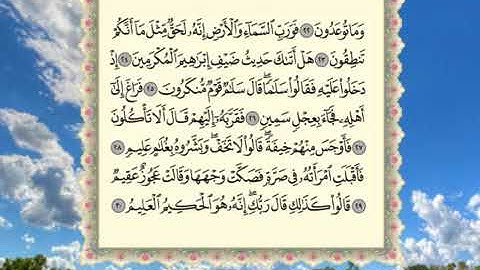 وَمَا تُوعَدُونَ ٢٢ فَوَرَبِّ ٱلسَّمَآءِ وَٱلْأَرْضِ إِنَّهُۥ لَحَقٌّ مِّثْلَ مَآ أَنَّكُمْ
تَنطِقُونَ ٢٣ هَلْ أَتَىٰكَ حَدِيثُ ضَيْفِ إِبْرَٰهِيمَ ٱلْمُكْرَمِينَ ٢٤ إِذْ
دَخَلُوا۟ عَلَيْهِ فَقَالُوا۟ سَلَٰمًا ۖ قَالَ سَلَٰمٌ قَوْمٌ مُّنكَرُونَ ٢٥ فَرَاغَ إِلَىٰٓ
أَهْلِهِۦ فَجَآءَ بِعِجْلٍ سَمِينٍ ٢٦ فَقَرَّبَهُۥٓ إِلَيْهِمْ قَالَ أَلَا تَأْكُلُونَ
٢٧ فَأَوْجَسَ مِنْهُمْ خِيفَةً ۖ قَالُوا۟ لَا تَخَفْ ۖ وَبَشَّرُوهُ بِغُلَٰمٍ عَلِيمٍ ٢٨
فَأَقْبَلَتِ ٱمْرَأَتُهُۥ فِى صَرَّةٍ فَصَكَّتْ وَجْهَهَا وَقَالَتْ عَجُوزٌ عَقِيمٌ
٢٩ قَالُوا۟ كَذَٰلِكِ قَالَ رَبُّكِ ۖ إِنَّهُۥ هُوَ ٱلْحَكِيمُ ٱلْعَلِيمُ ٣٠